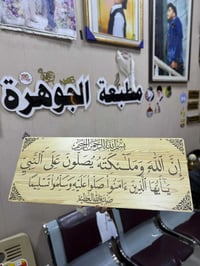 مطبعة الجوهرة
بسم الله الرحمن الرحيم
إن الله وملئكته يصلون على النبي
يأيها الذين ءامنوا صلوا عليه وسلموا تسليما